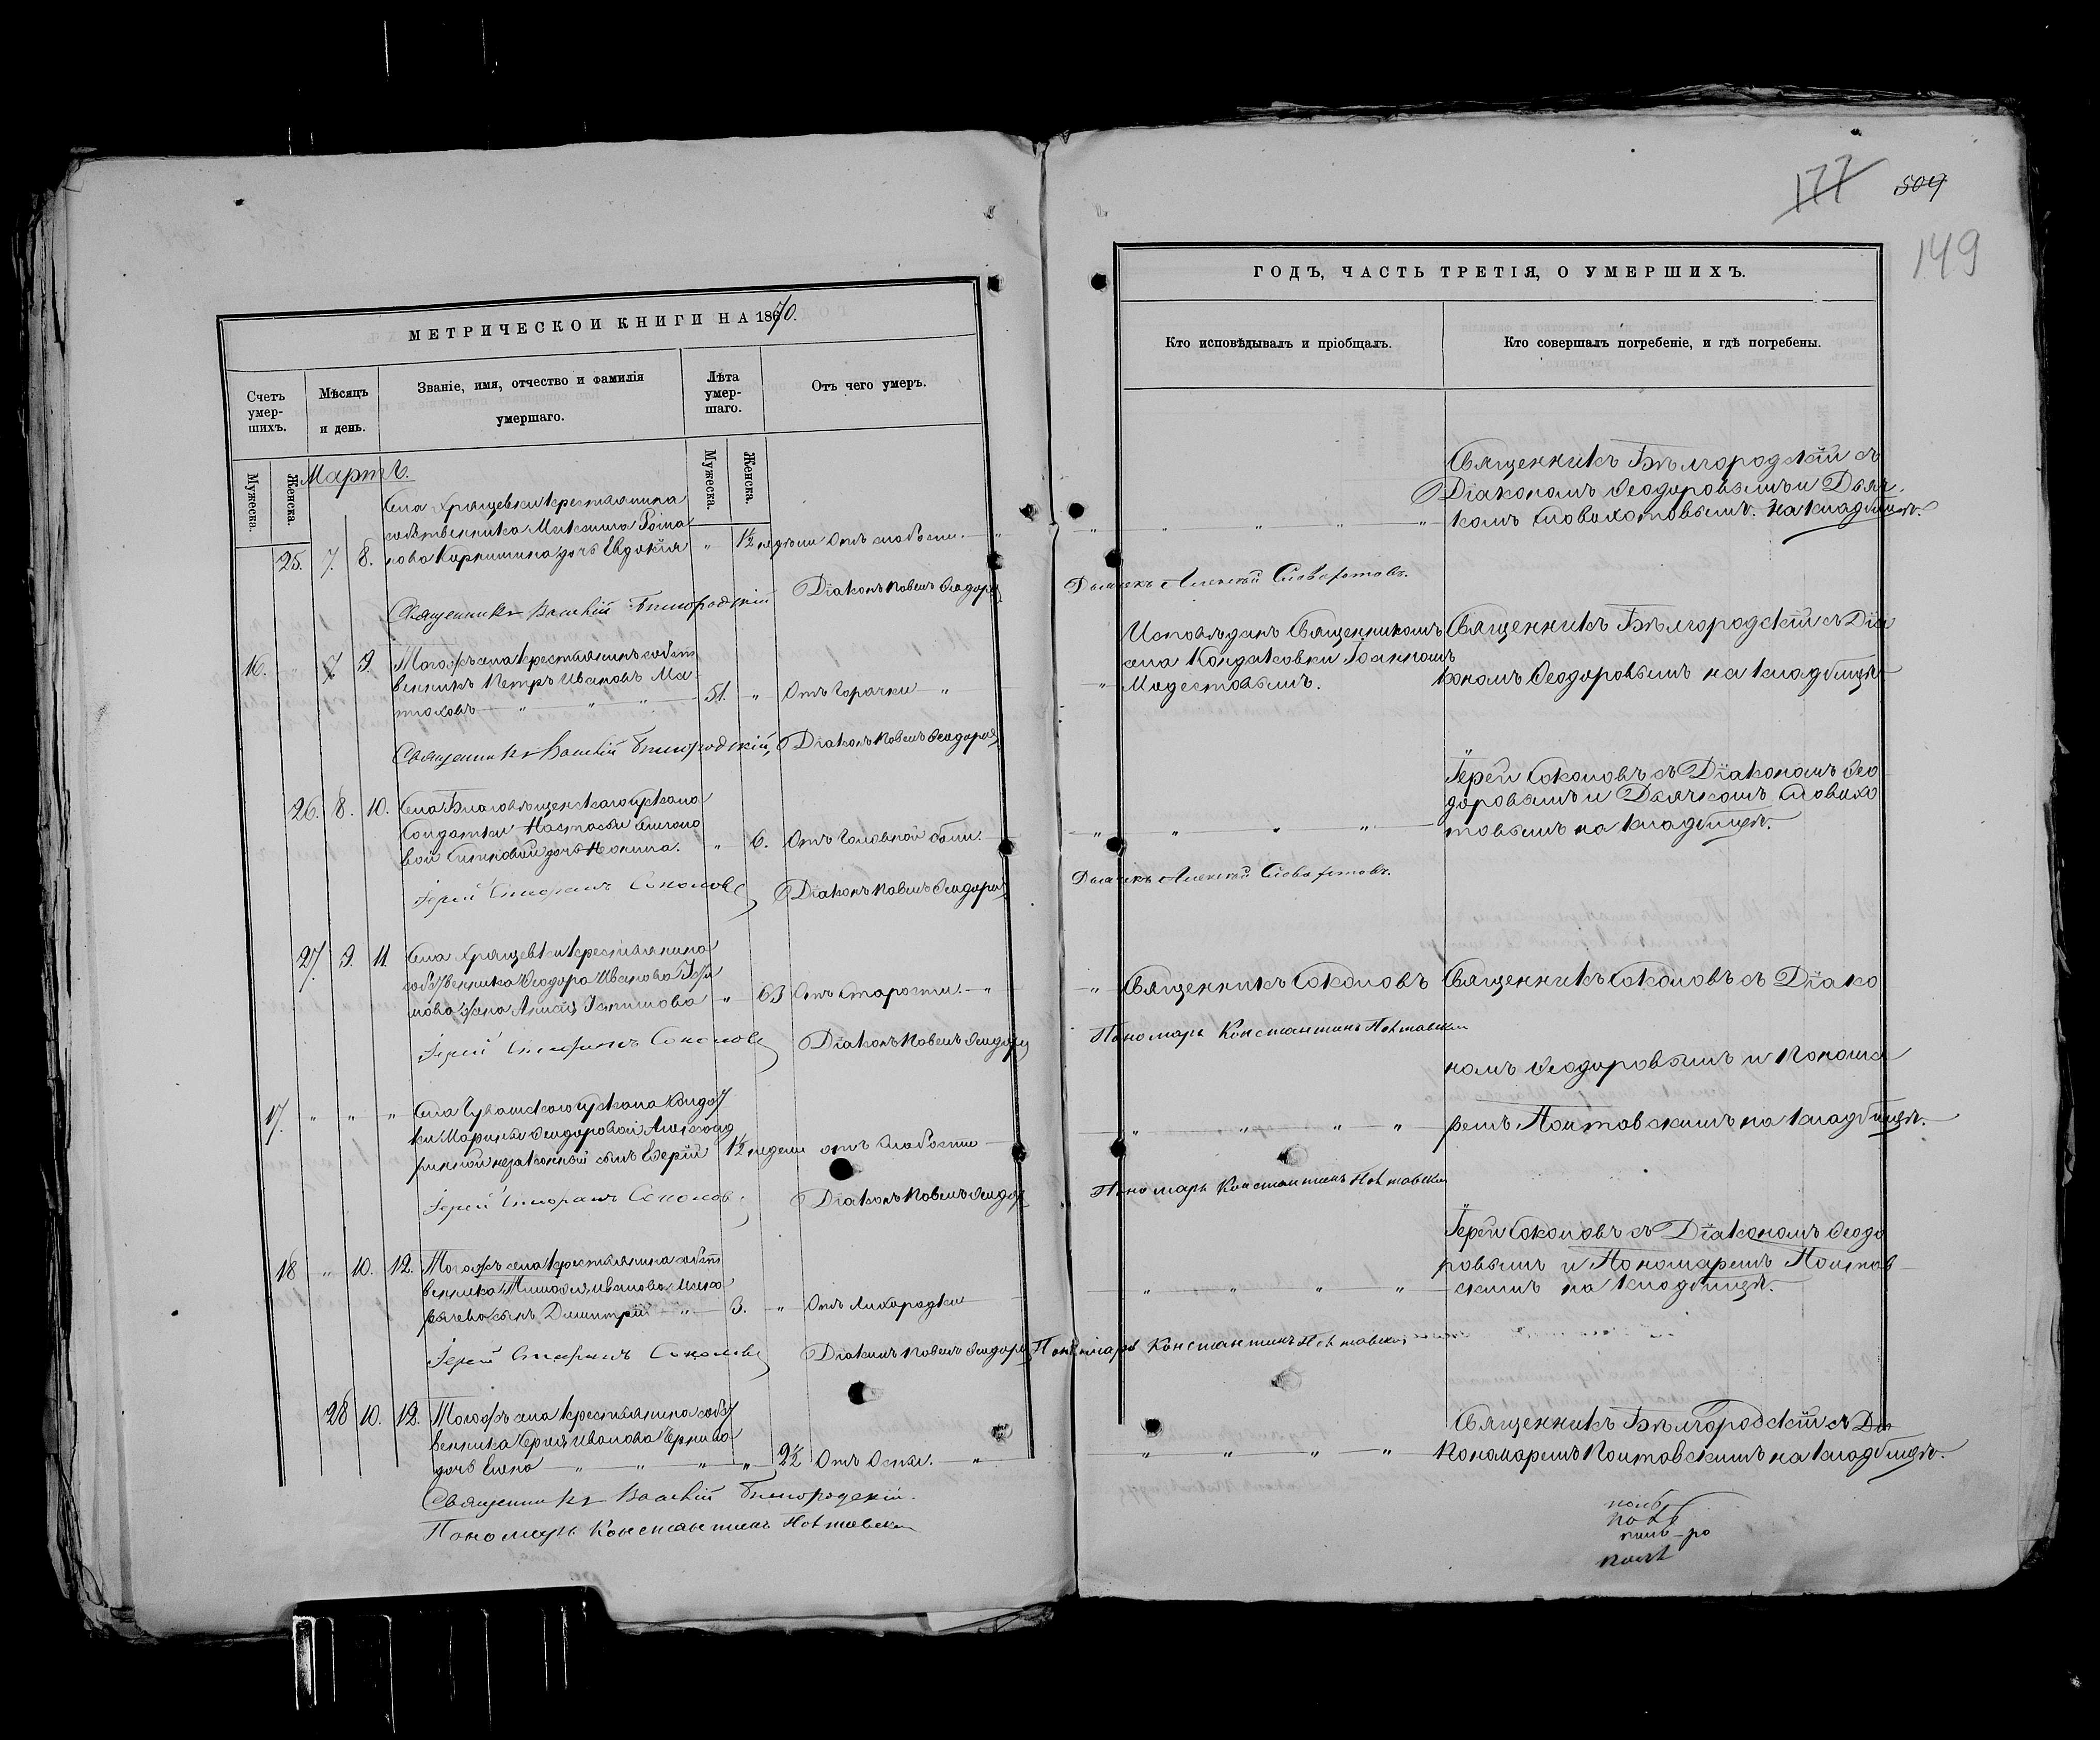 177 509
149
МЕТРИЧЕСКОИ КНИГИ НА 1870.
Счетъ умер-шихъ.
Мѣсяцъ и день.
Званіе, имя, отчество и фамилія умершаго.
Лѣта умер-шаго.
Отъ чего умеръ.
Мужеска.
Женска.
Мартъ.
Мужеска.
Женска.
Села Хрящевки крестьянина
собственника Максима Рома
25. 7. 8. нова дочь Евдокія „ 1½ недели Отъ слабости. „
Священникъ Василій Бѣлгородскій Діаконъ Павелъ Феодоровъ
16. „ 7 9. Тогожъ села крестьянинъ собст
венникъ Петръ Ивановъ Ма
тюховъ „ „ „ 51. „ Отъ Горячки „
Священникъ Василій Бѣлгородскій, Діаконъ Павелъ Феодоровъ
26. 8. 10. Села Благовѣщенскаго Сускана
Солдатки Настасьи
вой дочь Неонила. „ 6. Отъ Головной боли.
Іерей Стефанъ Соколовъ Діаконъ Павелъ Феодоровъ
27. 9. 11. Села Хрящевки крестьянина
собственника Феодора Иванова
жена Анисія „ 63 Отъ Старости. „
Іерей Стефанъ Соколовъ Діаконъ Павелъ Феодоровъ
17. „ „ „ Села Чувашскаго Сускана Солдат
ки Марины Феодоровой
незаконный сынъ 1½ недели отъ Слабости
Іерей Стефанъ Соколовъ Діаконъ Павелъ Феодоровъ
18 „ 10. 12. Тогожъ села крестьянина собст
венника Тимофея Иванова
сынъ Димитрій „ 3. „ Отъ Лихорадки
Іерей Стефанъ Соколовъ Діаконъ Павелъ Феодоровъ
28 10. 12. Тогожъ села крестьянина собст
венника Иванова
дочь Елена „ „ „ „ 2½ Отъ Оспы. „
Священникъ Василій Бѣлгородскій.
Пономарь Константинъ Полтавскій
ГОДЪ, ЧАСТЬ ТРЕТІЯ, О УМЕРШИХЪ.
Кто исповѣдывалъ и пріобщалъ.
Кто совершалъ погребеніе, и гдѣ погребены.
Священникъ Бѣлгородскій съ
Діакономъ Феодоровымъ и Дьяч
„ „ „ „ „ комъ Словохотовымъ. на кладбищѣ.
Дьячекъ Алексѣй Словохотовъ.
Исповѣданъ Священникомъ Священникъ Бѣлгородскій съ Діа
села Кондаковки Іоанномъ
„ Модестовымъ. кономъ Феодоровымъ на кладбищѣ
Іерей Соколовъ съ Діакономъ Фео
доровымъ и Дьячкомъ Словохо
„ „ „ „ товымъ на кладбищѣ.
Дьячекъ Алексѣй Словохотовъ.
„ Священникъ Соколовъ Священникъ Соколовъ съ Діако
Пономарь Константинъ Полтавскій
номъ Феодоровымъ и Понома
„ „ „ „ ремъ Полтавскимъ на кладбищѣ.
Пономарь Константинъ Полтавскій
Іерей Соколовъ съ Діакономъ Феодо
ровымъ и Пономаремъ Полтав
„ „ „ „ скимъ на кладбищѣ.
Пономарь Константинъ Полтавскій
Священникъ Бѣлгородскій съ
„ „ „ „ Пономаремъ Полтавскимъ на кладбищѣ.